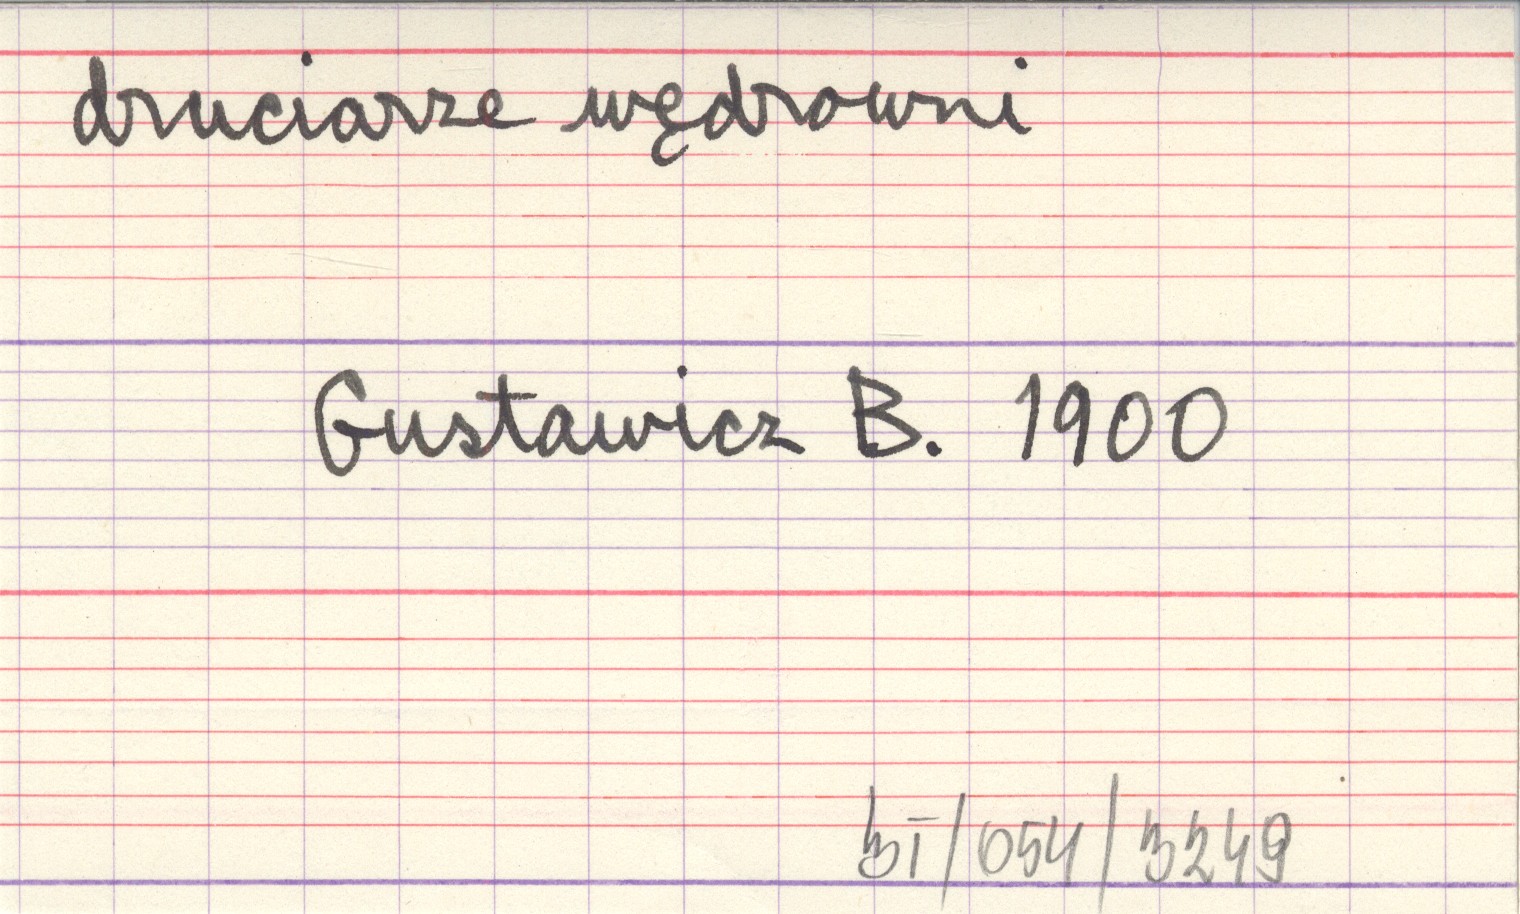 druciarze wędrowni
Gustawicz B. 1900
BI/054/3249